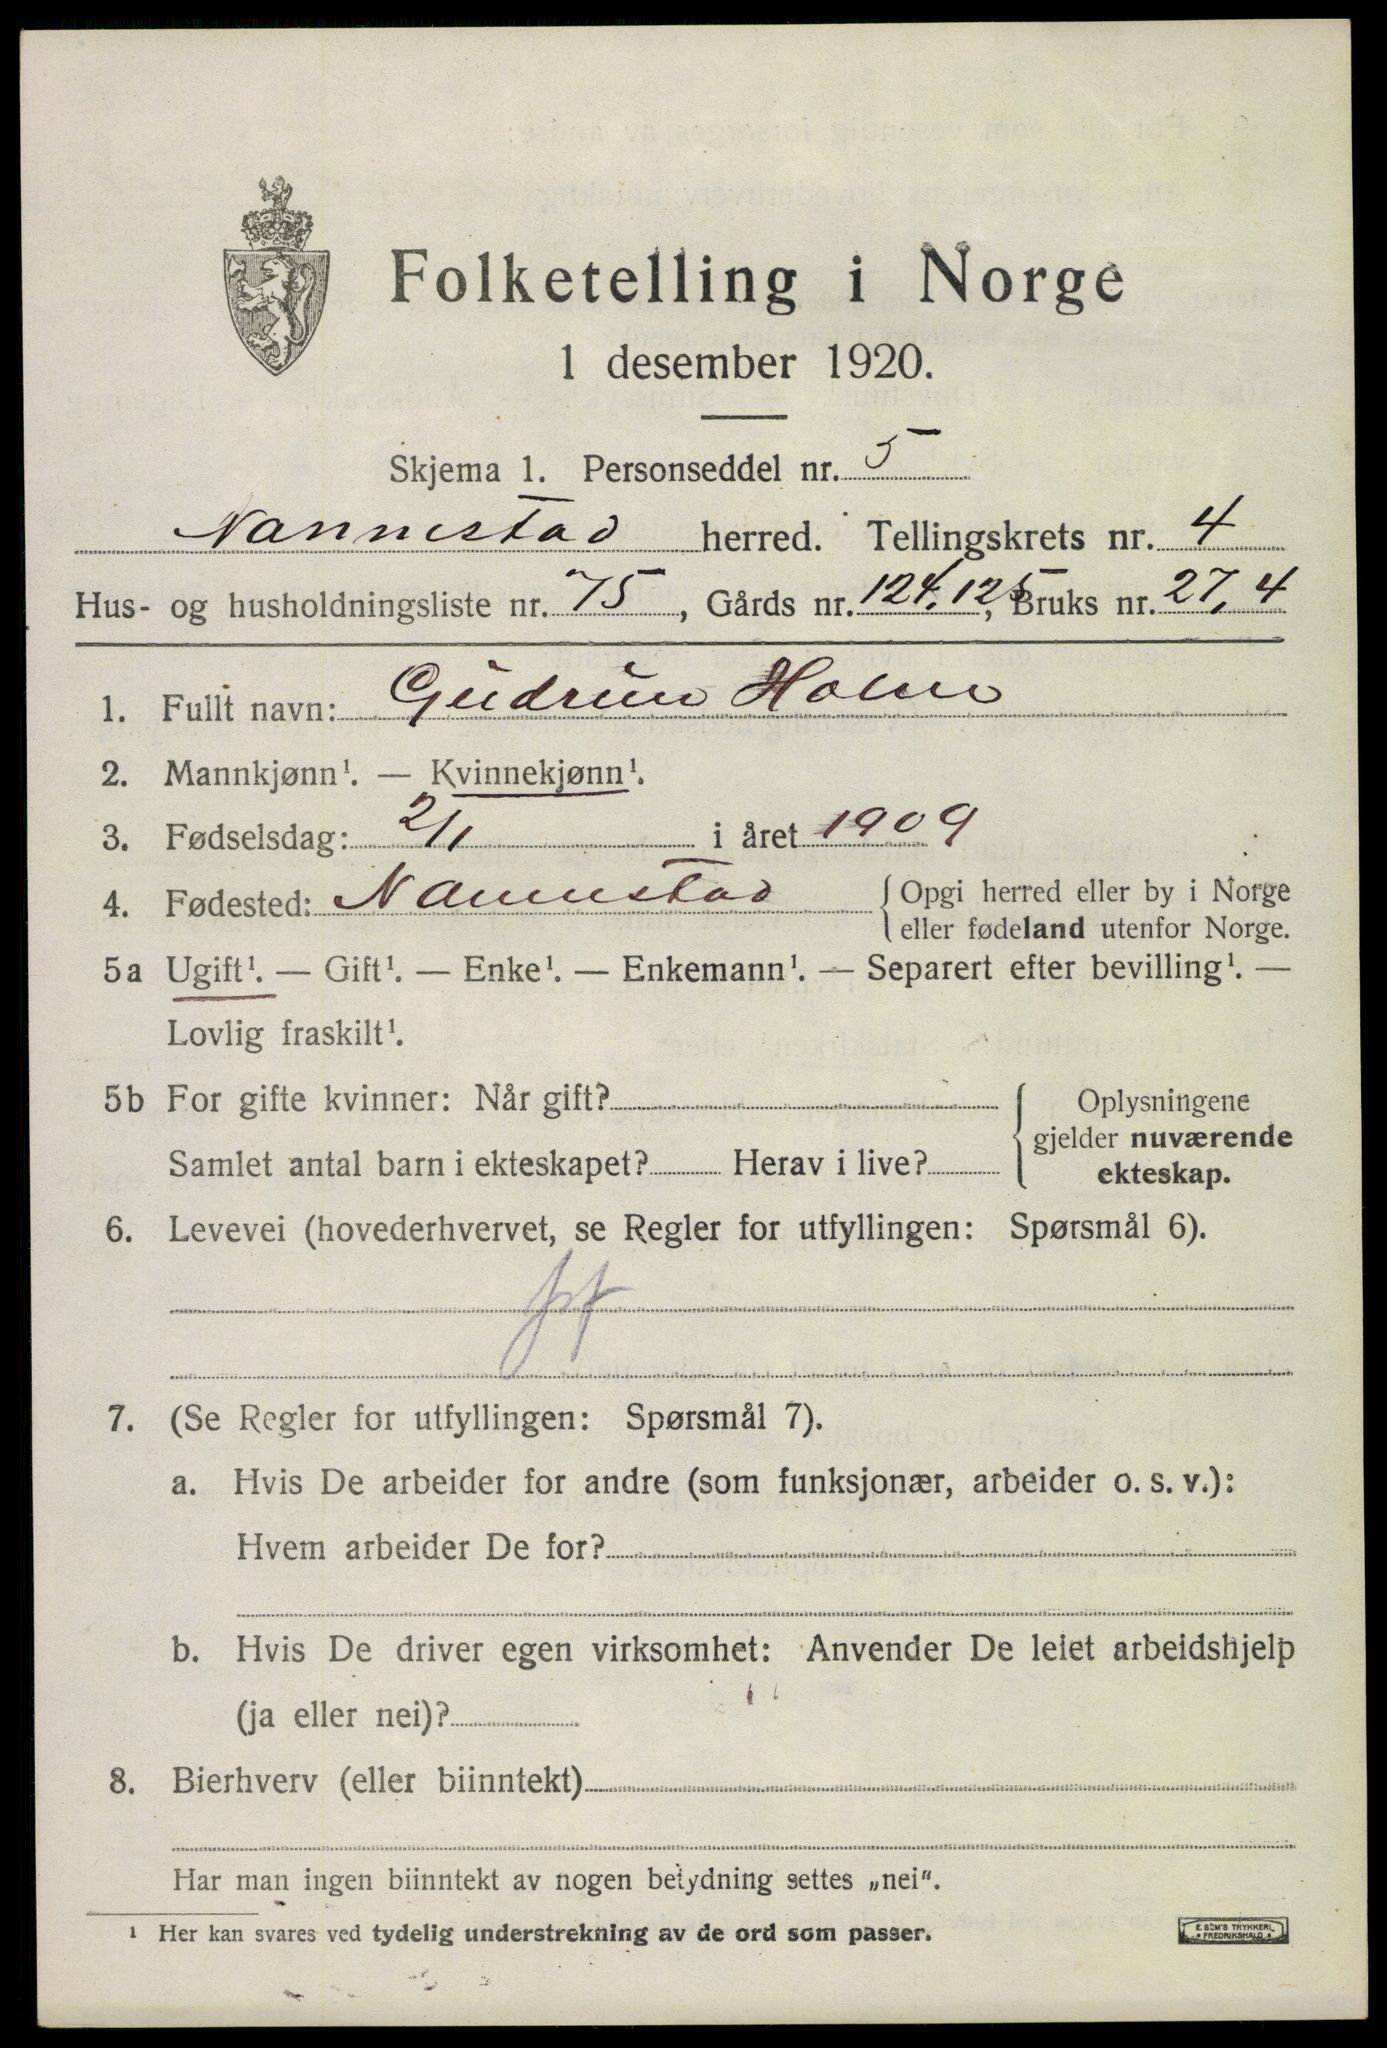 Folketelling i Norge
1 desember 1920.
Skjema 1. Personseddel nr. 5
Nannestad herred. Tellingskrets nr. 4
Hus- og husholdningsliste nr. 75, Gårds nr. 124, 125, Bruks nr. 27, 4
1. Fullt navn: Gudrun Holm
2. Mannkjønn¹. — Kvinnekjønn¹.
3. Fødselsdag: 2/1 i året 1909
4. Fødested: Nannestad {Opgi herred eller by i Norge
eller fødeland utenfor Norge.
5a Ugift¹. — Gift¹. — Enke¹. — Enkemann¹. — Separert efter bevilling¹. —
Lovlig fraskilt¹.
5b For gifte kvinner: Når gift?
Samlet antal barn i ekteskapet? Herav i live?
Oplysningene
gjelder nuværende
ekteskap.
6. Levevei (hovederhvervet, se Regler for utfyllingen: Spørsmål 6).
7. (Se Regler for utfyllingen: Spørsmål 7).
a. Hvis De arbeider for andre (som funksjonær, arbeider o. s. v.):
Hvem arbeider De for?
b. Hvis De driver egen virksomhet: Anvender De leiet arbeidshjelp
(ja eller nei)?
8. Bierhverv (eller biinntekt)
Har man ingen biinntekt av nogen betydning settes „nei“.
¹ Her kan svares ved tydelig understrekning av de ord som passer.
E. SEM'S TRYKKERI
FREDRIKSHALD